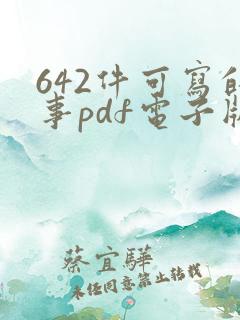 642件可寫的
事pdf電子版
蔡宜驊
未经同意禁止转载